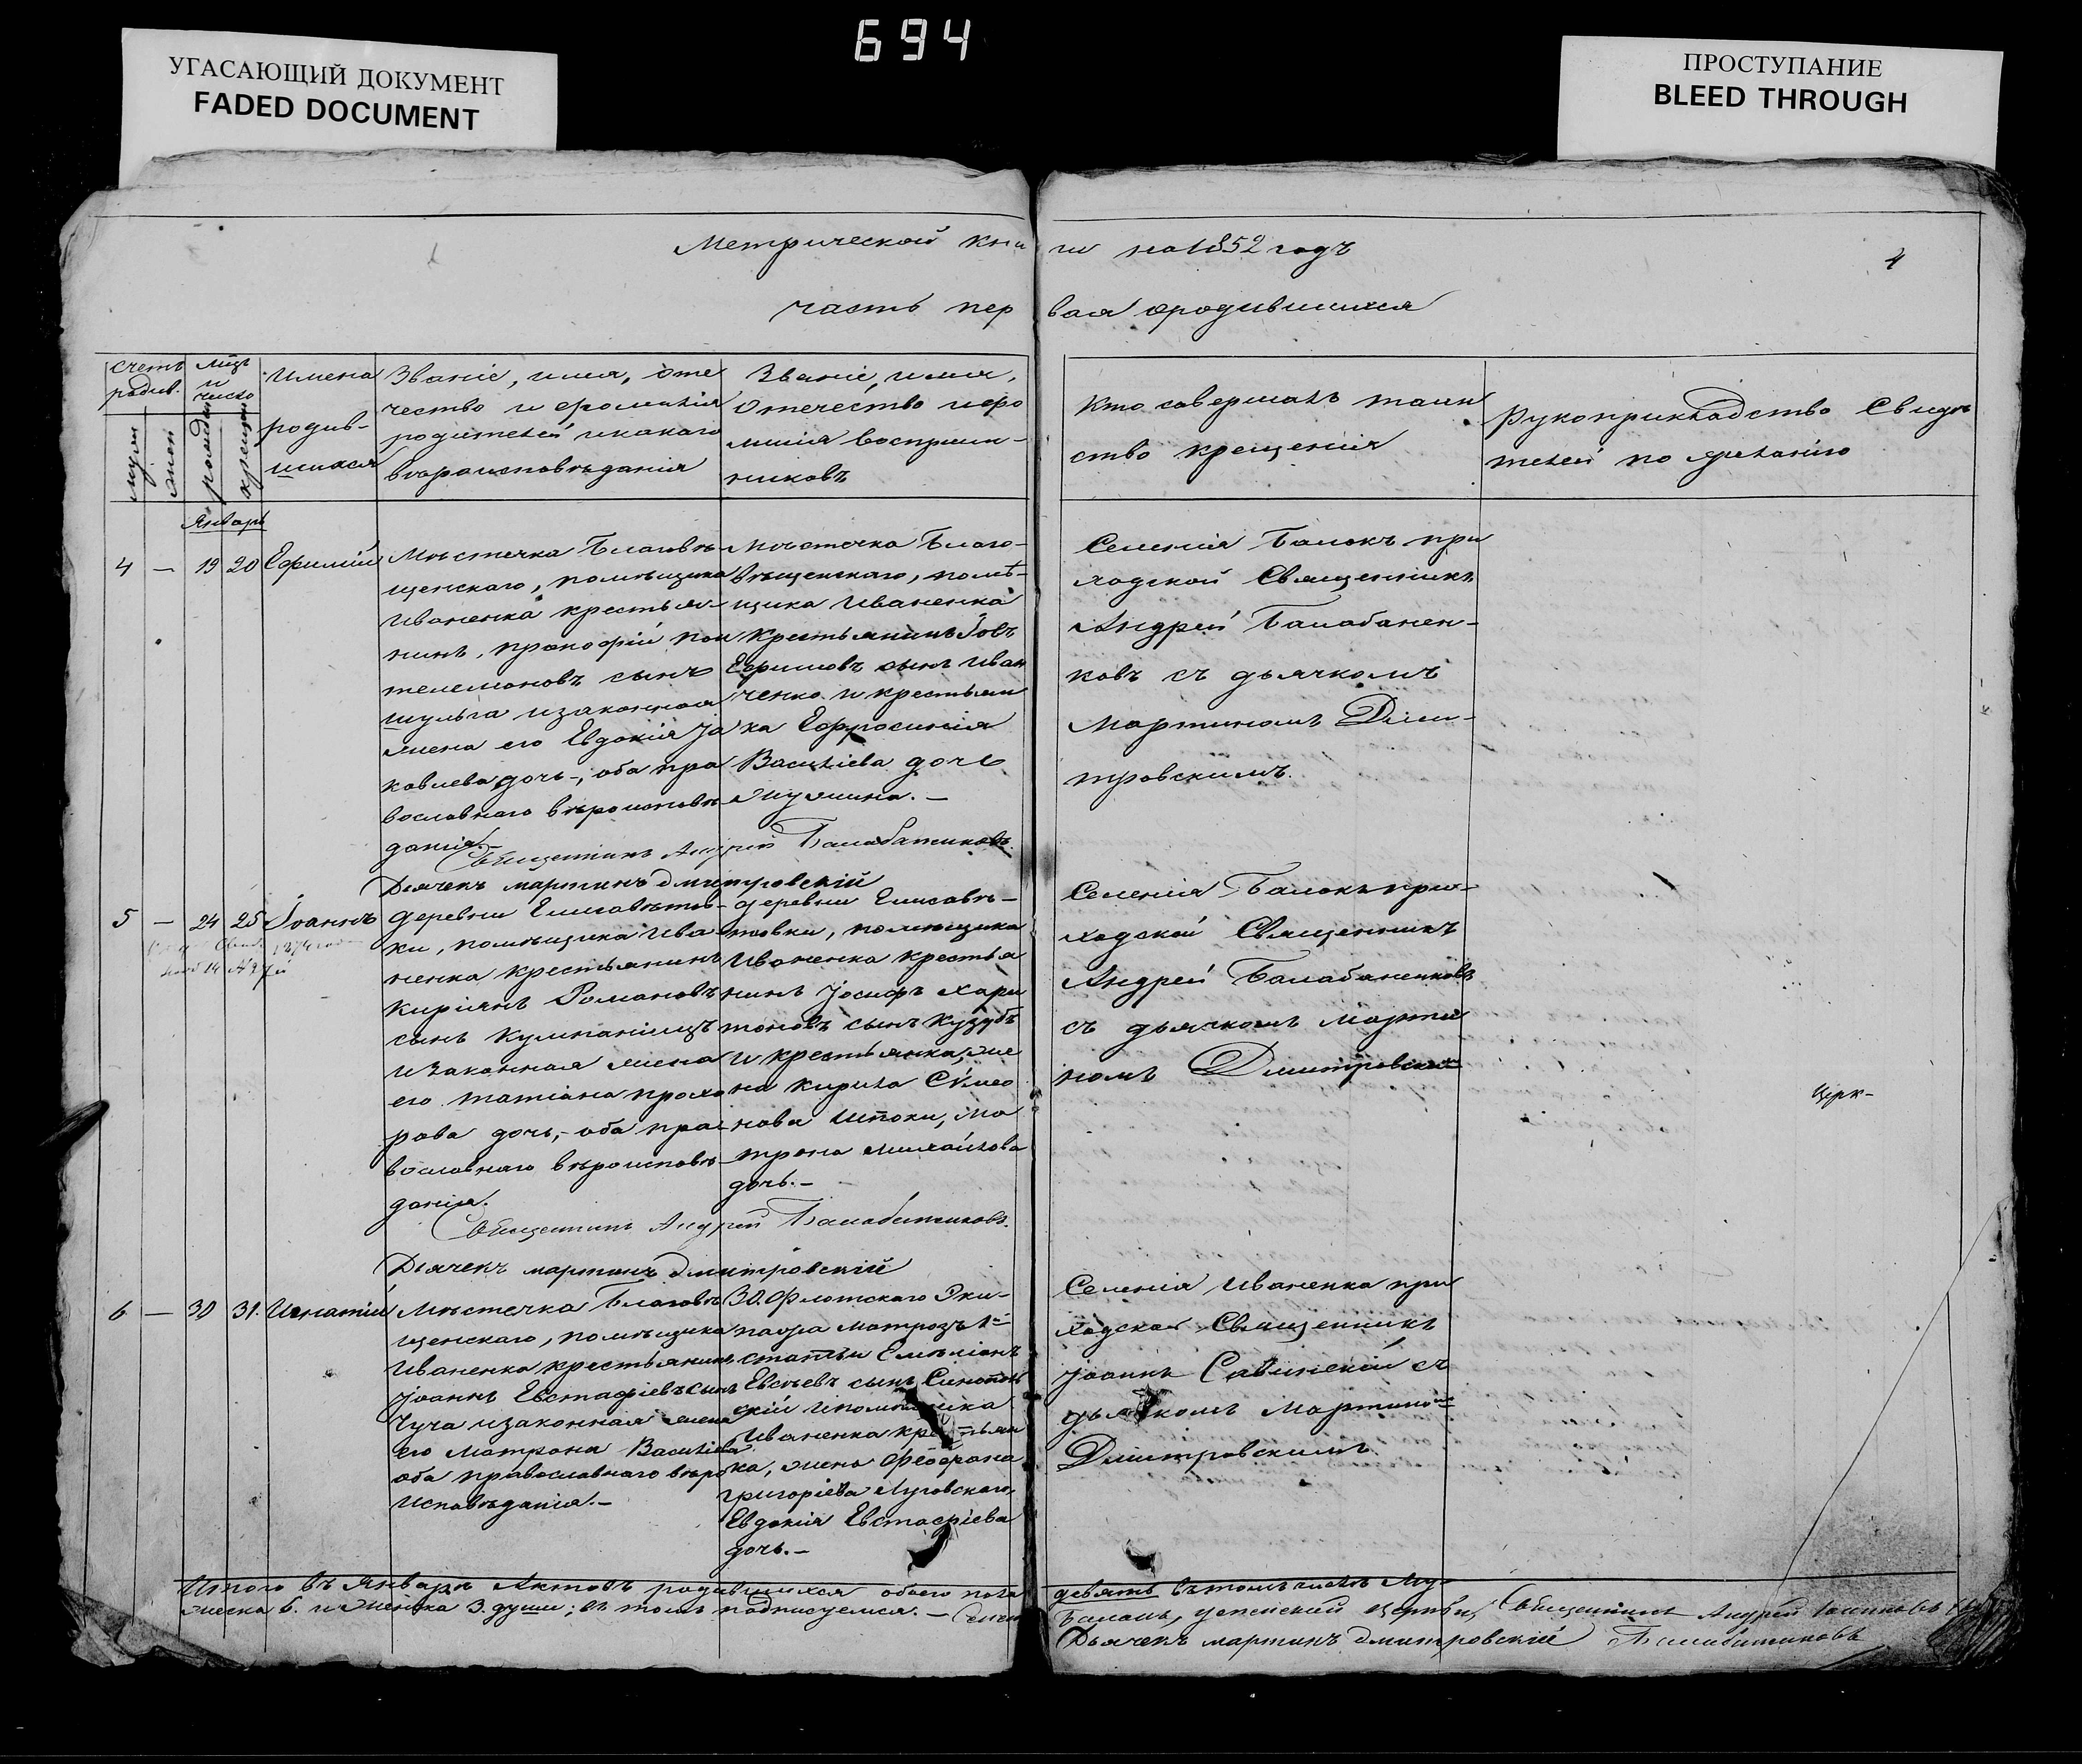 694
УГАСАЮЩИЙ ДОКУМЕНТ
FADED DOCUMENT
ПРОСТУПАНИЕ
BLEED THROUGH
Метрической кни ги на 1852 годъ
4
часть пер вая ородившихся
Счетъ родив.
муж
жен
мцъ и число
рожден
крещен
Имена
родив-
шихся
Званіе, имя, оте
чество и фамилія
родителей и какого
вѣроисповѣданія
Званіе, имя,
Отечество и фа
милія восприем-
никовъ
Кто совершалъ таин
ство крещенія
Рукоприкладство Свидѣ
телей по желанію
Январь
4 — 19 20 Ефимій
Мѣстечка Благовѣ
щенскаго, помѣщика
Иваненка крестья-
нинъ, прокофій пан
телемоновъ сынъ
шульга и законная
жена его Евдокія Іа
ковлева дочь-; оба пра
вославнаго вѣроисповѣ
данія.-
Мѣстечка Благо-
вѣщенскаго, помѣ-
щика Иваненка
Крестьянинъ Іовъ
Ефимовъ сынъ Иван
ченко и крестьян
ка Ефросинія
Василіева дочь
Селенія Балокъ при
ходской Священникъ
Андрей Балабанен-
ковъ съ дьячкомъ
Мартиномъ Дми-
тровскимъ.
Священникъ Андрей Балабаненковъ.
Дьячекъ мартинъ дмитровскій
5 — 24 25 Іоаннъ
деревни Елисаветов-
ки, помѣщика Ива-
ненка крестьянинъ
Киріянъ Романовъ
сынъ
и законная жена
его татіана прохо
рова дочь,- оба пра-
вославнаго вѣроисповѣ-
данія.
деревни Елисаве-
товки, помѣщика
Иваненка крестья
нинъ Іосифъ хари
тоновъ сынъ Кузубъ
и крестьянка, же
на Кирила Сѵмео
нова Шпоки, Ма
трона михайлова
дочь.-
Селенія Балокъ при-
ходской Священникъ
Андрей Балабаненковъ
съ дьячкомъ Марти
номъ Дмитровским
Церк-
Священникъ Андрей Балабаненковъ.
Дьячекъ мартинъ дмитровскій
6 — 30 31. Игнатій
Мѣстечка Благовѣ
щенскаго, помѣщика
Иваненка крестьянинъ
Іоаннъ Евстафіевъ сынъ
Чуча и законная жена
его Матрона Василіева
оба православнаго вѣро
исповѣданія.-
30. Флотскаго Эки-
пажа матрозъ 1й
статьи Емелiанъ
Евсѣевъ сынъ
скій и помѣщика
Иваненка крестьян
ка, жена
григоріева Луговскаго,
Евдокія Евстафіева
дочь.-
Селенія Иваненка при
ходской Священникъ
Іоаннъ Савинскій съ
дьячкомъ Мартиномъ
Дмитровскимъ
Итого въ Январѣ Актовъ родившихся обоего пола девять въ томъ числѣ Му-
жеска 6. и Женска 3. души; въ томъ и подписуемся.-
Священникъ Андрей
Дьячекъ мартинъ дмитровскій Балабаненковъ